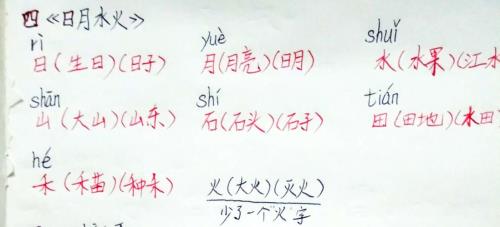 四《日月水火》
rì yuè shuǐ
日(生日)(日子) 月(月亮)(明月) 水(水果)(江水
shān shí tián
山(大山)(山东) 石(石头)(石子) 田(田地)(水田
hé
禾(禾苗)(种禾) 火(大火)(灭火)
少了一个"火"字